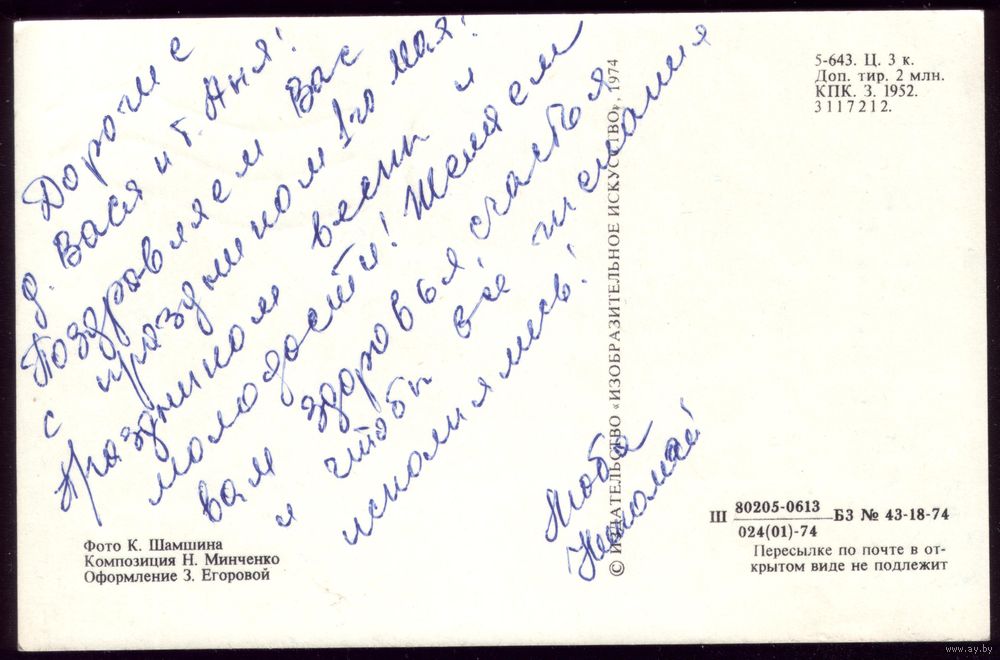 Дорогие
д. Вася и т. Аня!
Поздравляем Вас
с праздником 1го мая!
Праздником весны и
молодости! Желаем
вам здоровья, счастья
и чтобы все желания
исполнялись!
Люба
5-643. Ц. 3 к.
Доп. тир. 2 млн.
КПК. З. 1952.
3117212.
© ИЗДАТЕЛЬСТВО «ИЗОБРАЗИТЕЛЬНОЕ ИСКУССТВО», 1974
Фото К. Шамшина
Композиция Н. Минченко
Оформление З. Егоровой
Ш 80205-0613 БЗ № 43-18-74
024(01)-74
Пересылке по почте в от-
крытом виде не подлежит
www.ay.by